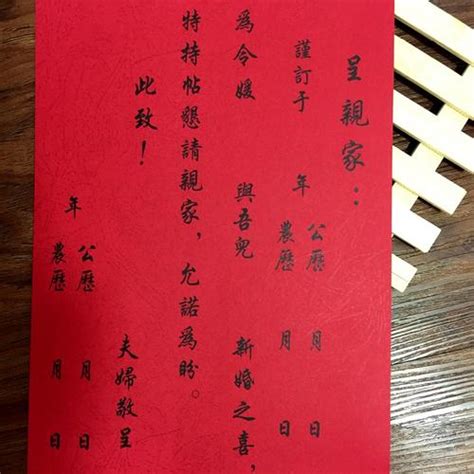 呈親家：
謹訂于 年 公曆 月 日
農曆 月 日
為令媛 與吾兒 新婚之喜，
特持帖懇請親家，允諾為盼。
此致！
夫婦敬呈
年 公曆 月 日
農曆 月 日